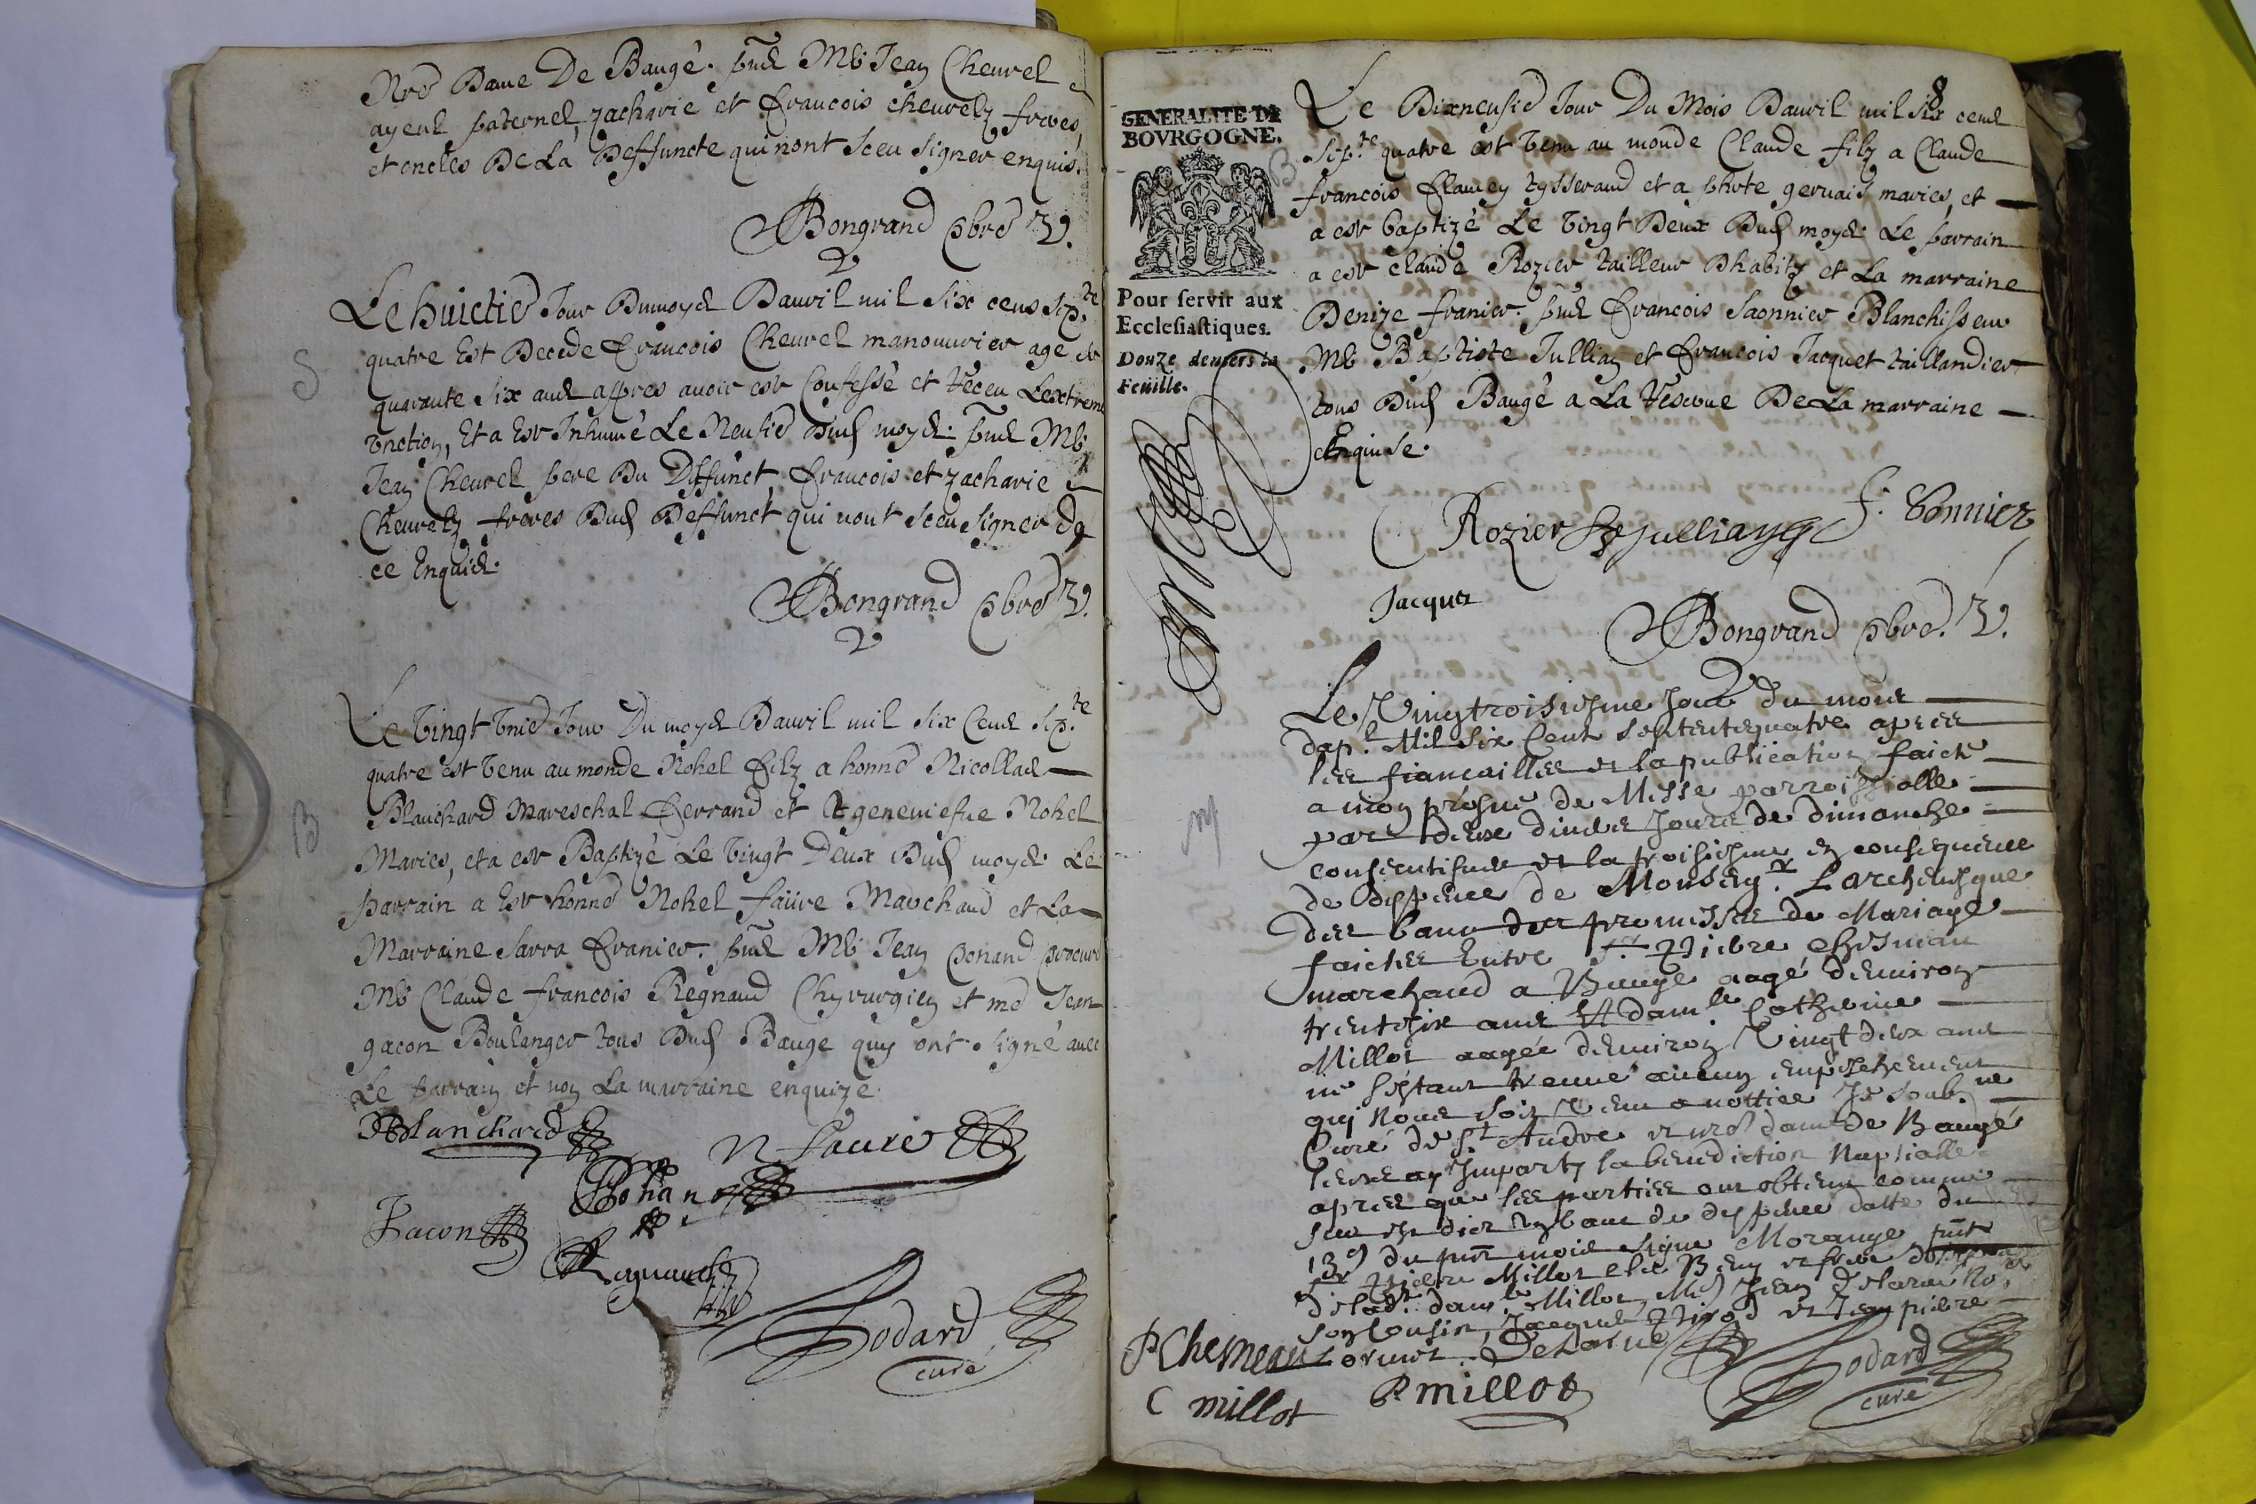 Nre Dame De Baugé. pñs Me Jean Cheurel
ayeul paternel, zacharie et francois cheurelz freres,
et oncles De La Deffuncte qui nont sceu signer enquis.
Bongrand pbre V.
Le huictie Jour Du moys Dauril mil six cens sep.te
quatre Est Decede francois Cheurel manouurier age de
quarante six ans apres auoir est Confessé et Receu Lextreme
Vnction, Et a Est Inhumé Le Neufie Dud moys. pñs Me
Jean Cheurel pere Du Deffunct francois et zacharie
Cheurelz freres Dud Deffunct qui nont sceu signer De
ce Enquis.
Bongrand pbre V.
S
Le Vingt Vnie Jour Du moys Dauril mil six Cens sep.te
quatre Est Venu au monde Nohel filz a honne Nicollas
Blanchard Mareschal ferrand et a geneuiefue Nohel
Maries, et a est Baptizé Le Vingt Deux Dud moys. Le
parrain a Est honne Nohel faüre Marchand et La
Marraine Sarra franier. pñs Me Jean Ponard
Me Claude francois Regnaud Chyrurgien et me Jean
gacon Boulanger tous Dud Bauge quy ont signé auec
Le parrain et non La marraine enquize
B
Blanchard
N Faure
Gacon
Regnaud
Godard
curé
8
GENERALITE DE
BOVRGOGNE.
Pour servir aux
Ecclesiastiques.
Douze deniers la
Feüille.
Le Dixneufie Jour Du Mois Dauril mil six cens
sep.te quatre est Venu au monde Claude filz a Claude
francois Clamey tysserand et a phte geruais maries, et
a est baptizé Le Vingt Deux Dud moys. Le parrain
a est claude Rozier tailleur Dhabitz et La marraine
Denize franier. pñs francois Saonnier Blanchisseur
Me Baptiste Jullian et francois Jacquet taillandier
tous Dud Baugé a La Reserue De La marraine
Enquise.
B
Rozier Jullian F. Sonnier
Jacquet
Bongrand pbre. V.
Le Vingtroisiesme Jour du mois
dap.l Mil six Cent septentequatre apres
les fiancailles et la publication faicte
a mon prosne de Messe parroissialle
par deux diuers Jours de dimanche
consecutifue et la troisiesme en consequence
de dispence de Monseig.r Larcheuesque
des bans des promesses de Mariage
faictes Entre s.r Pierre Chesmeau
marchand a Bauge aagé denuiron
trentesix ans Et dam.le Catherine
Millot aagée denuiron Vingt deux ans
ne sestant treuué aucun empeschement
quj nous soit Venu a nottice Je soub.ne
Curé de S.t Andre et nre dame de Baugé
leur ay Imparty la benediction Nuptialle
apres que les parties ont obtenu comme
13e du pnt mois signé Morange
M
P Chesmeau
Delarue
P millot
C millot
Godard
curé